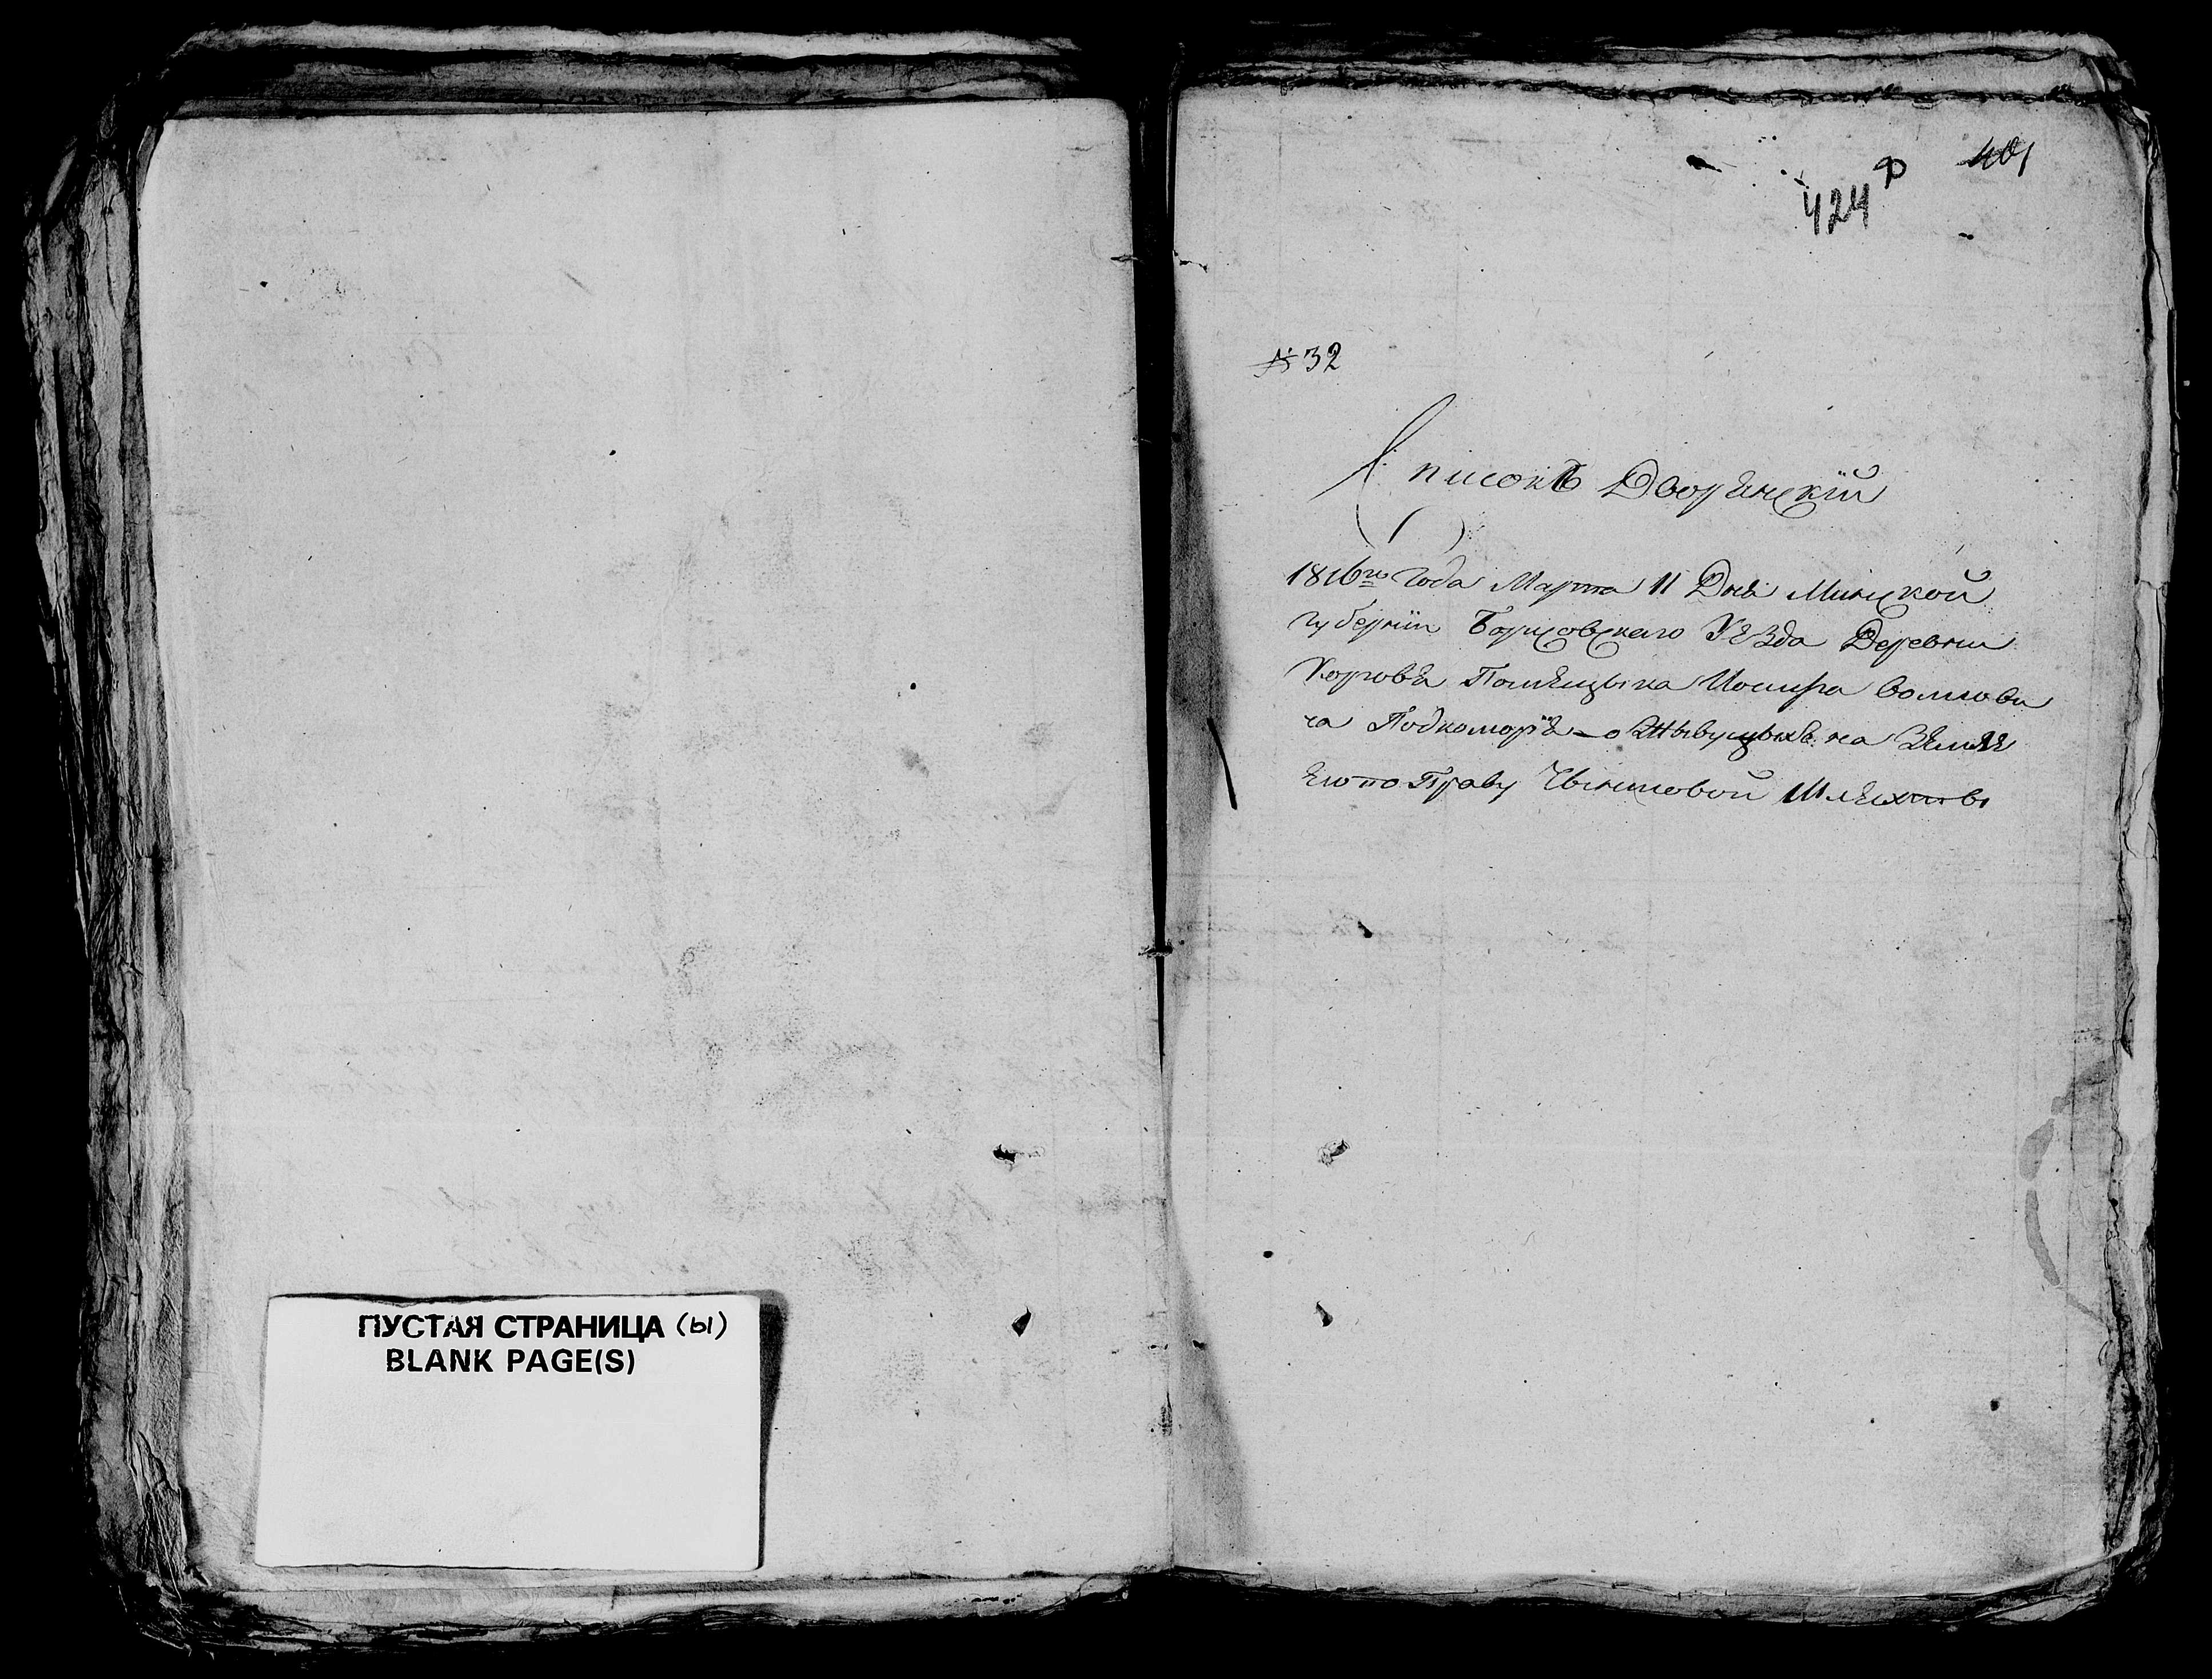 ПУСТАЯ СТРАНИЦА (ы)
BLANK PAGE(S)
401
424
№ 32
Списокъ Дворянскiй
1816го Года Марта 11 Дня Минской
губернiи Борисовскаго Уѣзда Деревни
Помѣщыка Иосифа Воллови
ча Подкоморiя о Жывущыхъ на Землѣ
Его по Праву Чыншовой Шляхты